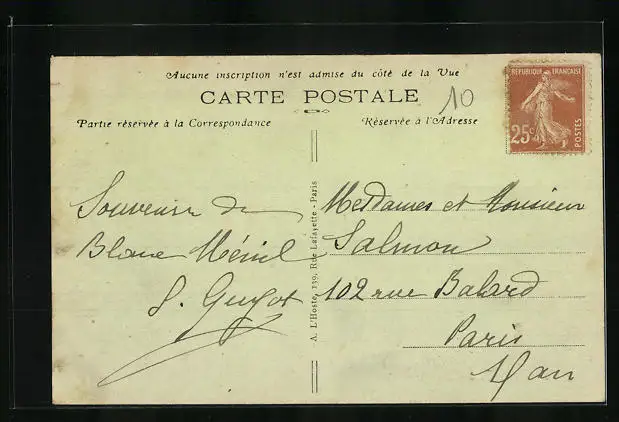 Aucune inscription n'est admise du côté de la Vue
CARTE POSTALE
10
Partie réservée à la Correspondance
Réservée à l'Adresse
RÉPUBLIQUE FRANÇAISE
25c
POSTES
Souvenir du
Blanc Ménil
Guyot
A. L'Hoste, 139, Rue Lafayette - Paris
Mesdames et Monsieur
Salmon
102 rue Balard
Paris